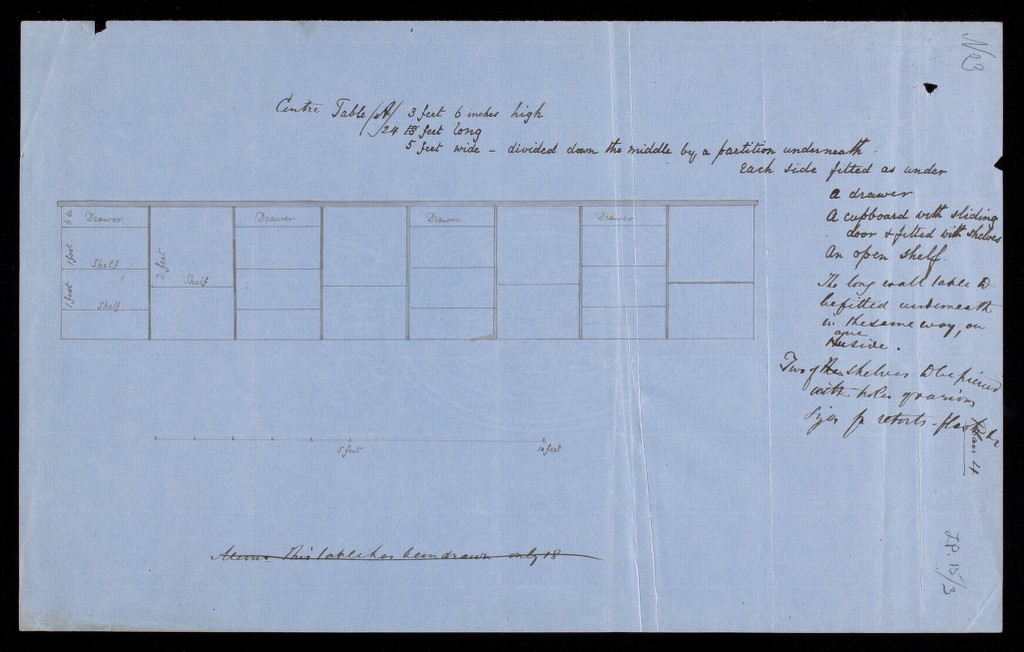 No 3
Centre Table /A/ 3 feet 6 inches high
24 18 feet long
5 feet wide - divided down the middle by a partition underneath.
Each side fitted as under
A drawer
A cupboard with sliding
door & fitted with shelves
An open shelf.
The long wall table to
be fitted underneath
in the same way, on
one side.
Two of the shelves to be pierced
with holes of various
sizes for retorts - flasks &c
Plan 4
6 in Drawer Drawer Drawer Drawer
1 foot Shelf 2 feet Shelf
1 foot Shelf
5 feet 10 feet
Memo This table has been drawn only 18
I.P. 15/3